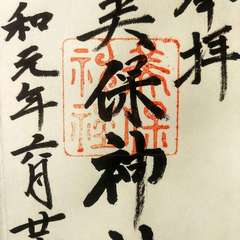 奉拝
美保神社
和元年六月廿
美保
神社